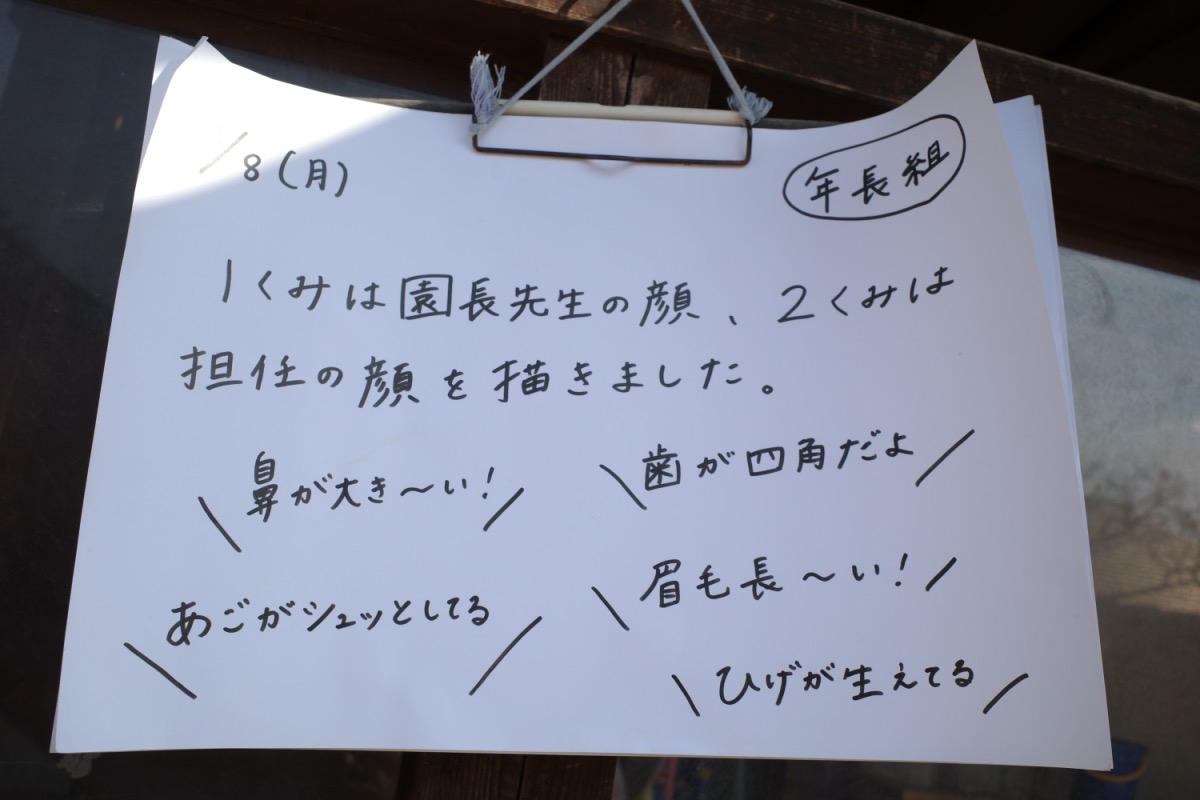 /8(月)
年長組
1くみは園長先生の顔、2くみは
担任の顔を描きました。
\鼻が大き〜い!/
\歯が四角だよ/
\あごがシュッとしてる/
\眉毛長〜い!/
\ひげが生えてる/